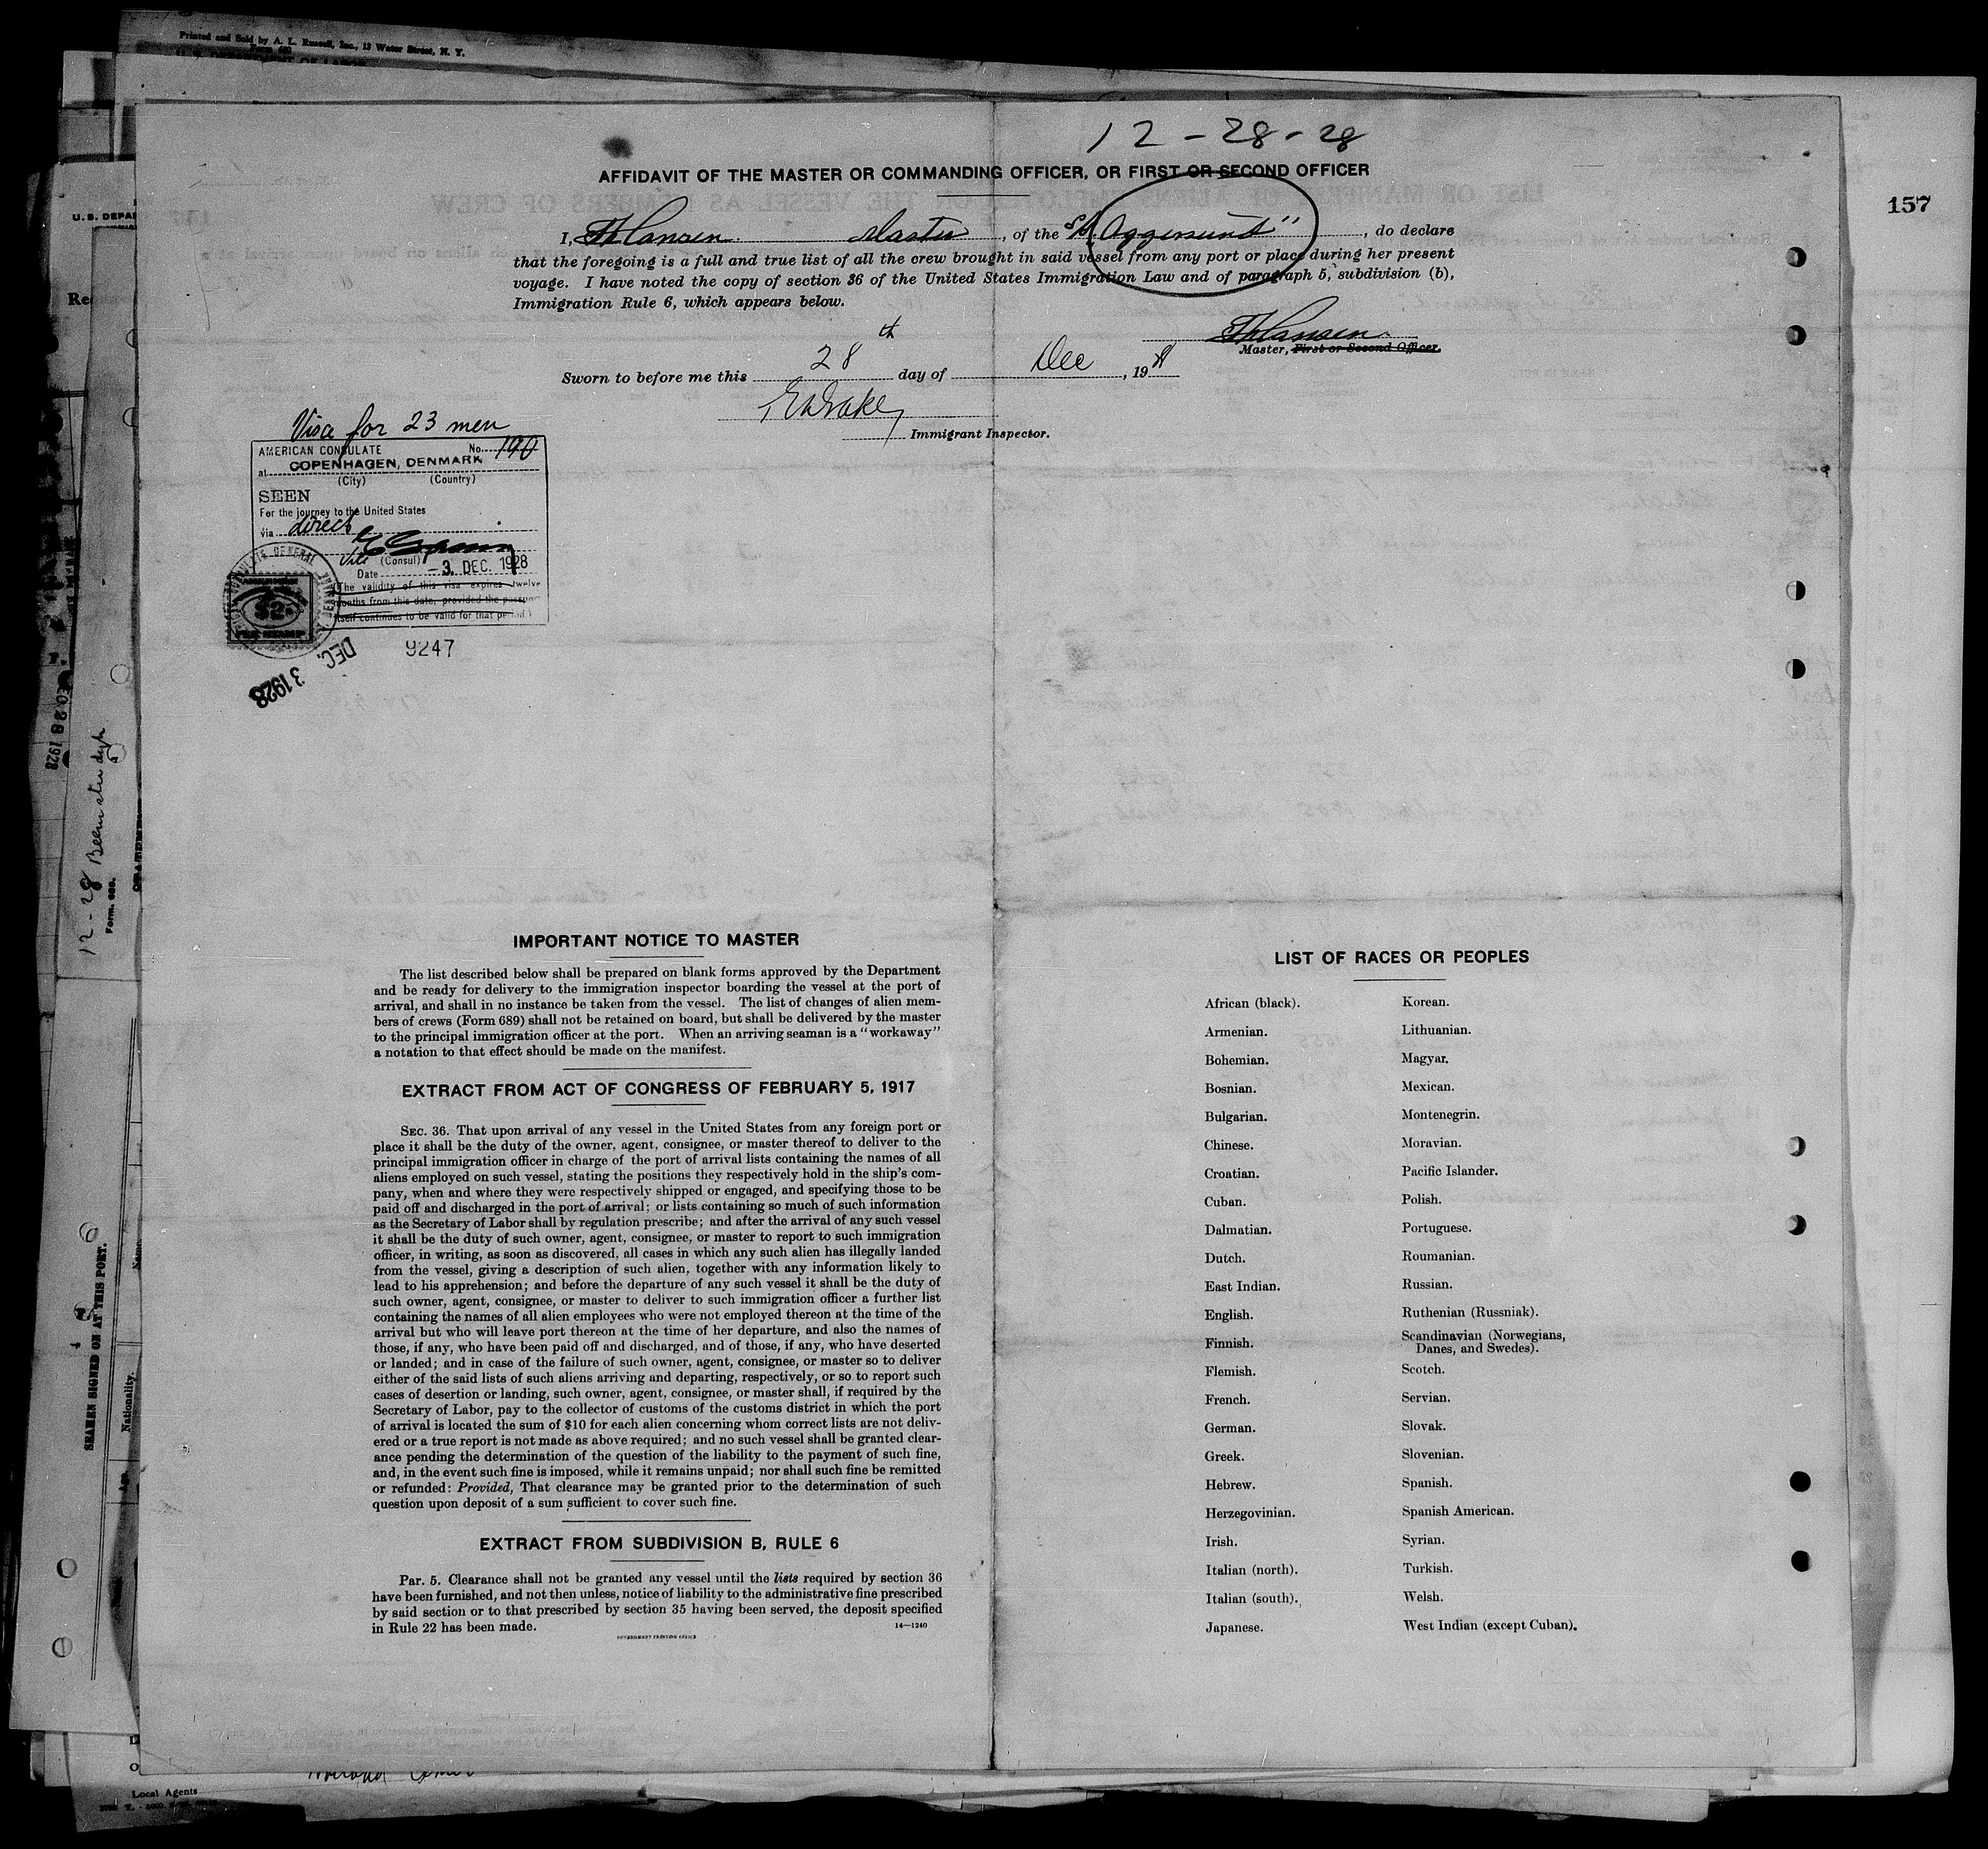 Printed and Sold by A. L. Russell, Inc., 13 Water Street, N. Y.
12 - 28 - 28
AFFIDAVIT OF THE MASTER OR COMMANDING OFFICER, OR FIRST OR SECOND OFFICER
157
I, Hansen Master, of the S/S "Aggersund", do declare
that the foregoing is a full and true list of all the crew brought in said vessel from any port or place during her present
voyage. I have noted the copy of section 36 of the United States Immigration Law and of paragraph 5, subdivision (b),
Immigration Rule 6, which appears below.
Hansen
Master, First or Second Officer.
Sworn to before me this 28th day of Dec, 19
Immigrant Inspector.
Visa for 23 men
AMERICAN CONSULATE No. 190
at COPENHAGEN, DENMARK
(City) (Country)
SEEN
For the journey to the United States
via direct
Vice (Consul)
Date -3. DEC. 1928
The validity of this visa expires twelve
months from this date, provided the passport
itself continues to be valid for that period
$2.
FEE STAMP
DEC. 3 1928
9247
IMPORTANT NOTICE TO MASTER
The list described below shall be prepared on blank forms approved by the Department
and be ready for delivery to the immigration inspector boarding the vessel at the port of
arrival, and shall in no instance be taken from the vessel. The list of changes of alien mem-
bers of crews (Form 689) shall not be retained on board, but shall be delivered by the master
to the principal immigration officer at the port. When an arriving seaman is a "workaway"
a notation to that effect should be made on the manifest.
EXTRACT FROM ACT OF CONGRESS OF FEBRUARY 5, 1917
SEC. 36. That upon arrival of any vessel in the United States from any foreign port or
place it shall be the duty of the owner, agent, consignee, or master thereof to deliver to the
principal immigration officer in charge of the port of arrival lists containing the names of all
aliens employed on such vessel, stating the positions they respectively hold in the ship's com-
pany, when and where they were respectively shipped or engaged, and specifying those to be
paid off and discharged in the port of arrival; or lists containing so much of such information
as the Secretary of Labor shall by regulation prescribe; and after the arrival of any such vessel
it shall be the duty of such owner, agent, consignee, or master to report to such immigration
officer, in writing, as soon as discovered, all cases in which any such alien has illegally landed
from the vessel, giving a description of such alien, together with any information likely to
lead to his apprehension; and before the departure of any such vessel it shall be the duty of
such owner, agent, consignee, or master to deliver to such immigration officer a further list
containing the names of all alien employees who were not employed thereon at the time of the
arrival but who will leave port thereon at the time of her departure, and also the names of
those, if any, who have been paid off and discharged, and of those, if any, who have deserted
or landed; and in case of the failure of such owner, agent, consignee, or master so to deliver
either of the said lists of such aliens arriving and departing, respectively, or so to report such
cases of desertion or landing, such owner, agent, consignee, or master shall, if required by the
Secretary of Labor, pay to the collector of customs of the customs district in which the port
of arrival is located the sum of $10 for each alien concerning whom correct lists are not deliv-
ered or a true report is not made as above required; and no such vessel shall be granted clear-
ance pending the determination of the question of the liability to the payment of such fine,
and, in the event such fine is imposed, while it remains unpaid; nor shall such fine be remitted
or refunded: Provided, That clearance may be granted prior to the determination of such
question upon deposit of a sum sufficient to cover such fine.
EXTRACT FROM SUBDIVISION B, RULE 6
Par. 5. Clearance shall not be granted any vessel until the lists required by section 36
have been furnished, and not then unless, notice of liability to the administrative fine prescribed
by said section or to that prescribed by section 35 having been served, the deposit specified
in Rule 22 has been made. 14—1240
GOVERNMENT PRINTING OFFICE
LIST OF RACES OR PEOPLES
African (black).
Armenian.
Bohemian.
Bosnian.
Bulgarian.
Chinese.
Croatian.
Cuban.
Dalmatian.
Dutch.
East Indian.
English.
Finnish.
Flemish.
French.
German.
Greek.
Hebrew.
Herzegovinian.
Irish.
Italian (north).
Italian (south).
Japanese.
Korean.
Lithuanian.
Magyar.
Mexican.
Montenegrin.
Moravian.
Pacific Islander.
Polish.
Portuguese.
Roumanian.
Russian.
Ruthenian (Russniak).
Scandinavian (Norwegians,
Danes, and Swedes).
Scotch.
Servian.
Slovak.
Slovenian.
Spanish.
Spanish American.
Syrian.
Turkish.
Welsh.
West Indian (except Cuban).
U. S. DEPA
28 1928
12-28
Form. 689.
SEAMEN SIGNED ON AT THIS PORT.
Nationality.
Age.
Local Agents